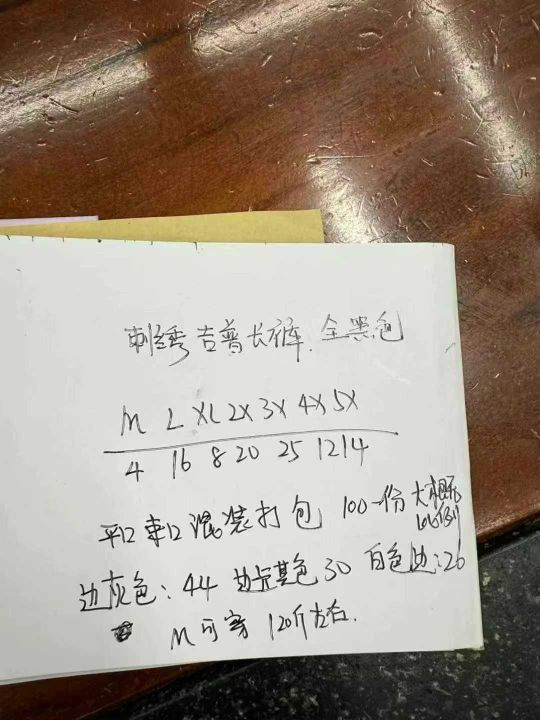 刺绣吉普长裤.全黑色
M L XL 2X 3X 4X 5X
4 16 8 20 25 12 14
平口束口混装打包 100一份 大概
边灰色:44 边 色30 白色边:26
M可穿 120斤左右.